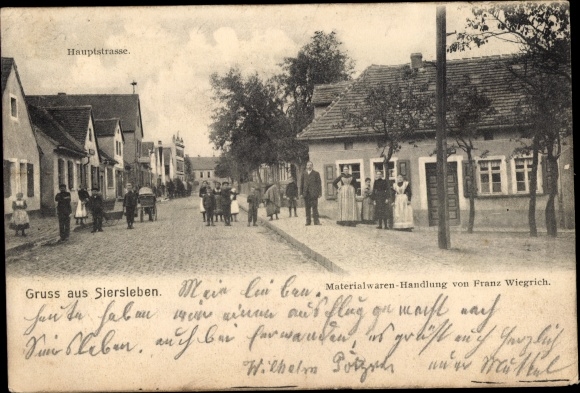 Hauptstrasse.
Gruss aus Siersleben.
Materialwaren-Handlung von Franz Wiegrich.
Mein lieben.
heute haben wir einen ausflug gemacht nach
Siersleben. auch bei Verwanden, es grüßt euch herzlich
Wilhelm euer Muttel